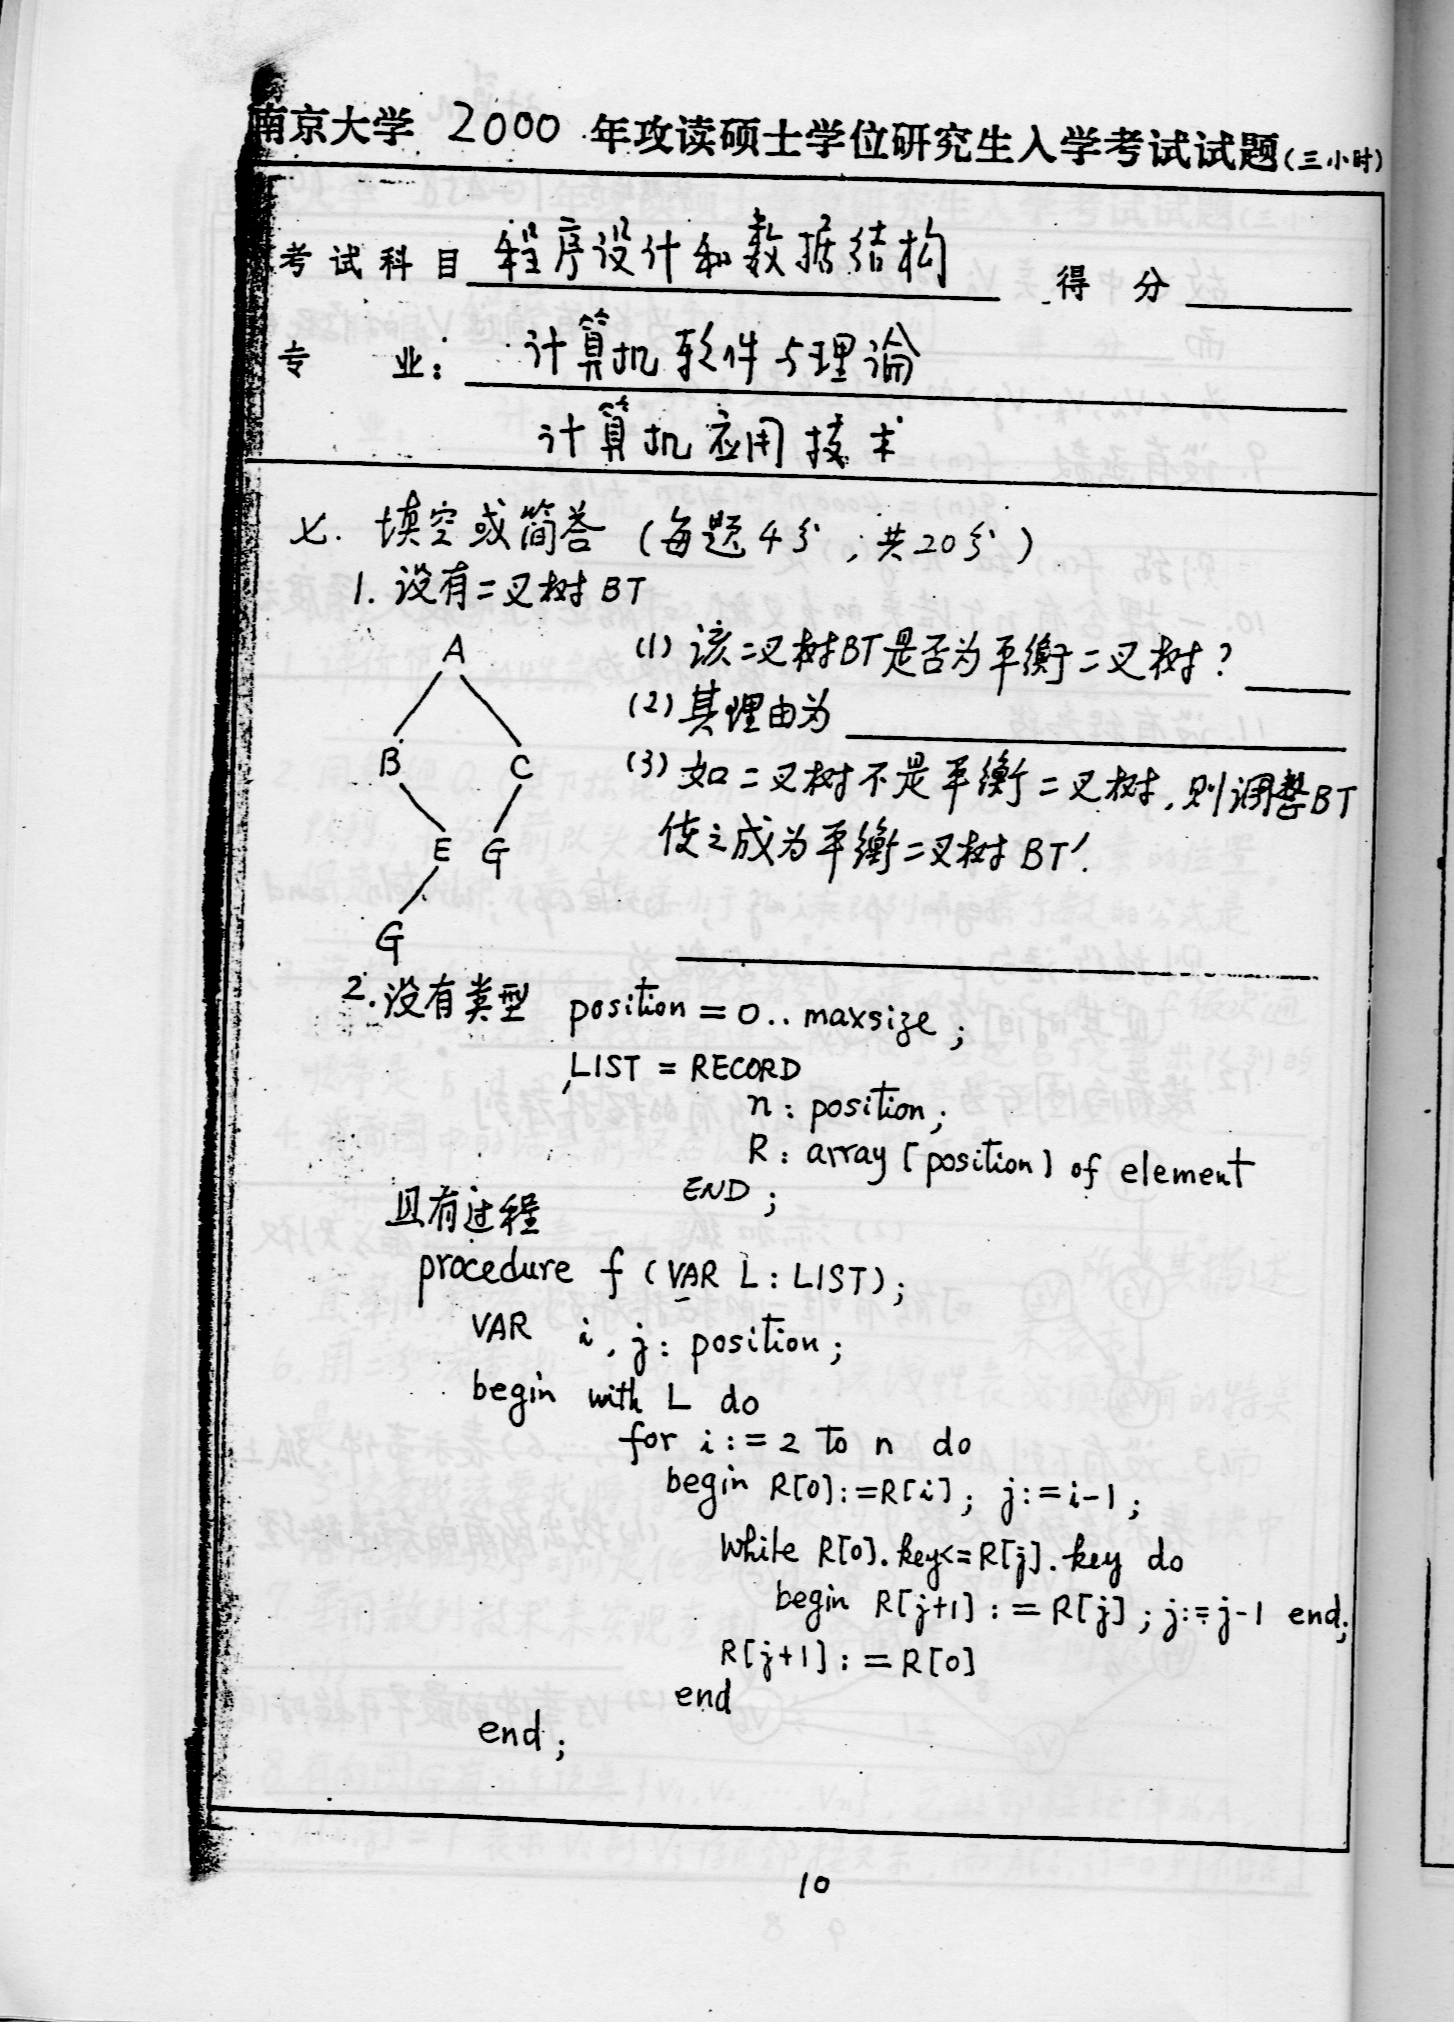 南京大学 2000 年攻读硕士学位研究生入学考试试题(三小时)
考试科目 程序设计和数据结构 得分
专业: 计算机软件与理论
计算机应用技术
七. 填空或简答 (每题4分,共20分)
1. 设有二叉树BT
A
B C
E G
G
(1) 该二叉树BT是否为平衡二叉树?
(2) 其理由为
(3) 如二叉树不是平衡二叉树,则调整BT
使之成为平衡二叉树BT′.
2. 设有类型 position = 0..maxsize;
LIST = RECORD
n: position;
R: array [position] of element
END;
且有过程
procedure f (VAR L: LIST);
VAR i, j: position;
begin with L do
for i:=2 to n do
begin R[0]:=R[i]; j:=i-1;
while R[0].key<=R[j].key do
begin R[j+1]:=R[j]; j:=j-1 end;
R[j+1]:=R[0]
end
end;
10